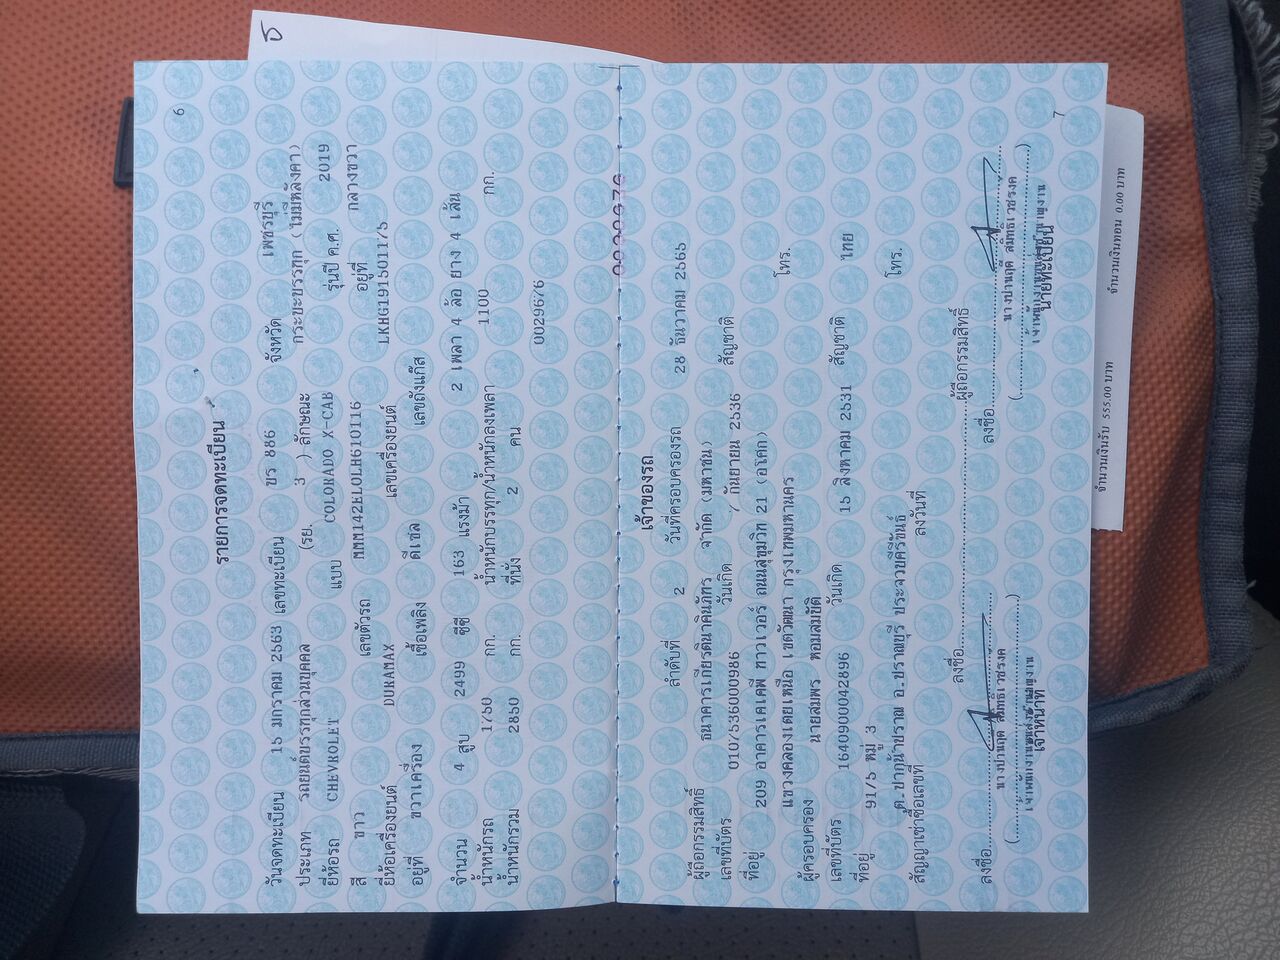 5
6
รายการจดทะเบียน
วันจดทะเบียน 15 มกราคม 2563 เลขทะเบียน ขร 886 จังหวัด เพชรบุรี
ประเภท รถยนต์บรรทุกส่วนบุคคล (รย. 3 ) ลักษณะ กระบะบรรทุก (ไม่มีหลังคา)
ยี่ห้อรถ CHEVROLET แบบ COLORADO X-CAB รุ่นปี ค.ศ. 2019
สี ขาว เลขตัวรถ MMM142ELOLH610116 อยู่ที่ กลางขวา
ยี่ห้อเครื่องยนต์ DURAMAX เลขเครื่องยนต์ LKHG191501175
อยู่ที่ ขวาเครื่อง เชื้อเพลิง ดีเซล เลขถังแก๊ส
จำนวน 4 สูบ 2499 ซีซี 163 แรงม้า 2 เพลา 4 ล้อ ยาง 4 เส้น
น้ำหนักรถ 1750 กก. น้ำหนักบรรทุก/น้ำหนักลงเพลา 1100 กก.
น้ำหนักรวม 2850 กก. ที่นั่ง 2 คน
0029676
เจ้าของรถ
ลำดับที่ 2 วันที่ครอบครองรถ 28 ธันวาคม 2565
ผู้ถือกรรมสิทธิ์ ธนาคารเกียรตินาคินภัทร จำกัด (มหาชน)
เลขที่บัตร 0107536000986 วันเกิด 7 กันยายน 2536 สัญชาติ
ที่อยู่ 209 อาคารเคเคพี ทาวเวอร์ ถนนสุขุมวิท 21 (อโศก)
แขวงคลองเตยเหนือ เขตวัฒนา กรุงเทพมหานคร โทร.
ผู้ครอบครอง นายสมพร หอมสมบัติ
เลขที่บัตร 1640900042896 วันเกิด 15 สิงหาคม 2531 สัญชาติ ไทย
ที่อยู่ 91/5 หมู่ 3
ต.ปากน้ำปราณ อ.ปราณบุรี ประจวบคีรีขันธ์ โทร.
สัญญาเช่าซื้อเลขที่ ลงวันที่
ลงชื่อ ผู้ถือกรรมสิทธิ์
ลงชื่อ ลงชื่อ
เจ้าหน้าที่ นายทะเบียน
7
จำนวนเงินรับ 555.00 บาท จำนวนเงินทอน 0.00 บาท